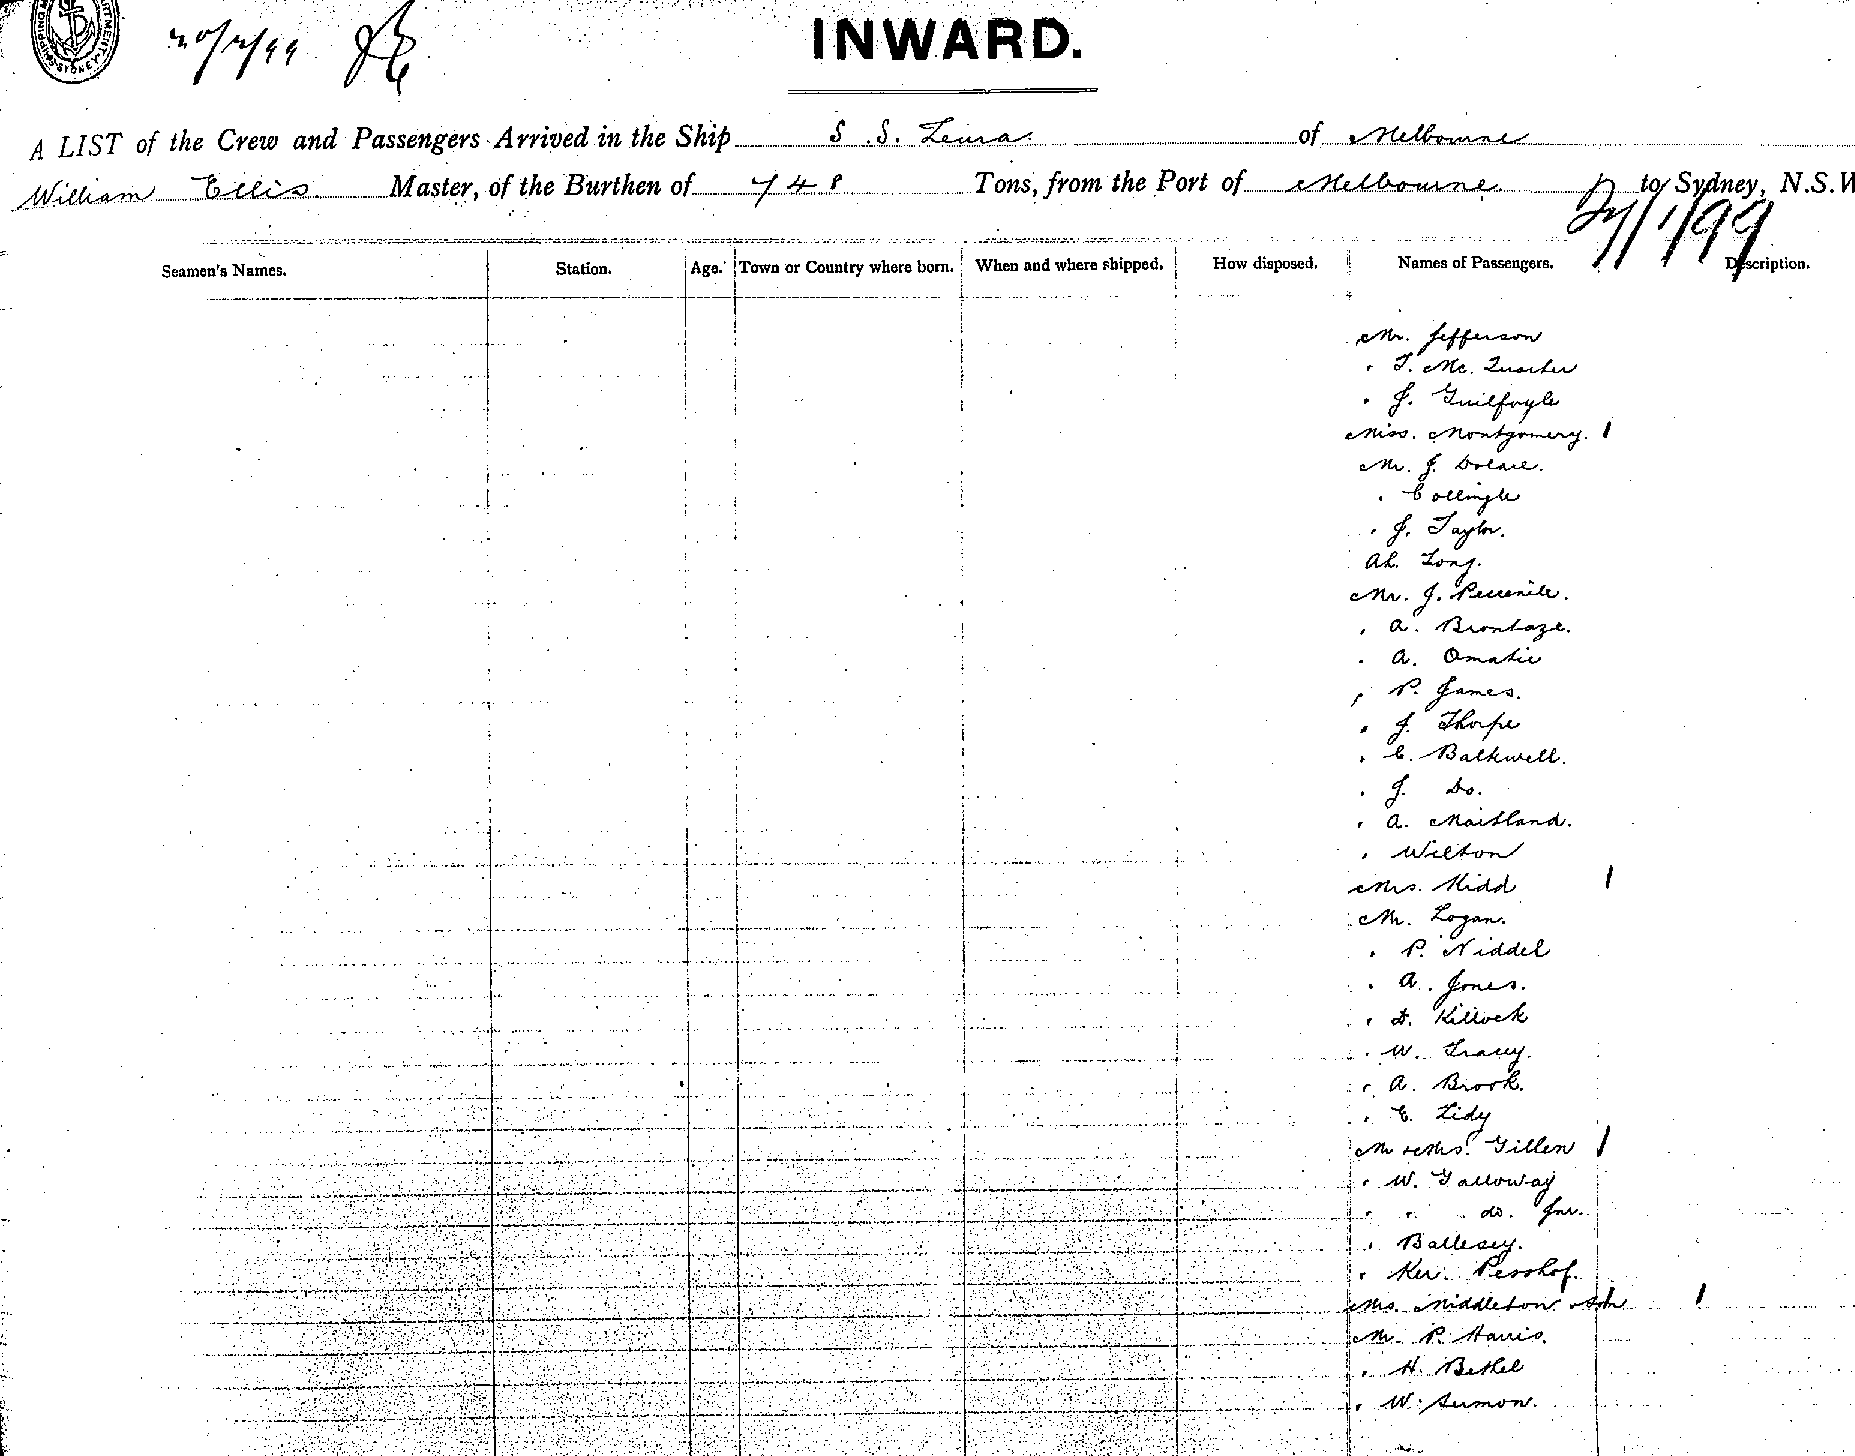 20/2/99
INWARD.
A LIST of the Crew and Passengers Arrived in the Ship S.S. Leura of Melbourne
William Ellis Master, of the Burthen of 748 Tons, from the Port of Melbourne to Sydney, N.S.W
/1/99
Seamen's Names. Station. Age. Town or Country where born. When and where shipped. How disposed. Names of Passengers. Description.
Mr. Jefferson
" T. Mc.
" J. Guilfoyle
Miss. Montgomery. 1
Mr. J.
"
" J. Taylor.
Ah. Long.
Mr. J.
" A. Brontaze.
" A. Omatic
" P. James.
" J. Thorpe
" C. Balkwell.
" J. Do.
" A. Maitland.
" Wilton
Mrs. Kidd 1
Mr. Logan.
" P. Niddel
" A. Jones.
" D. Killock
" W. Tracey.
" A. Brook.
" E. Lidy
Mr & Mrs. Gillen 1
" W. Galloway
" " do. Jnr.
" Ballesey.
" Ker.
Mrs. Middleton 1
Mr. P. Harris.
" H. Bethel
" W.